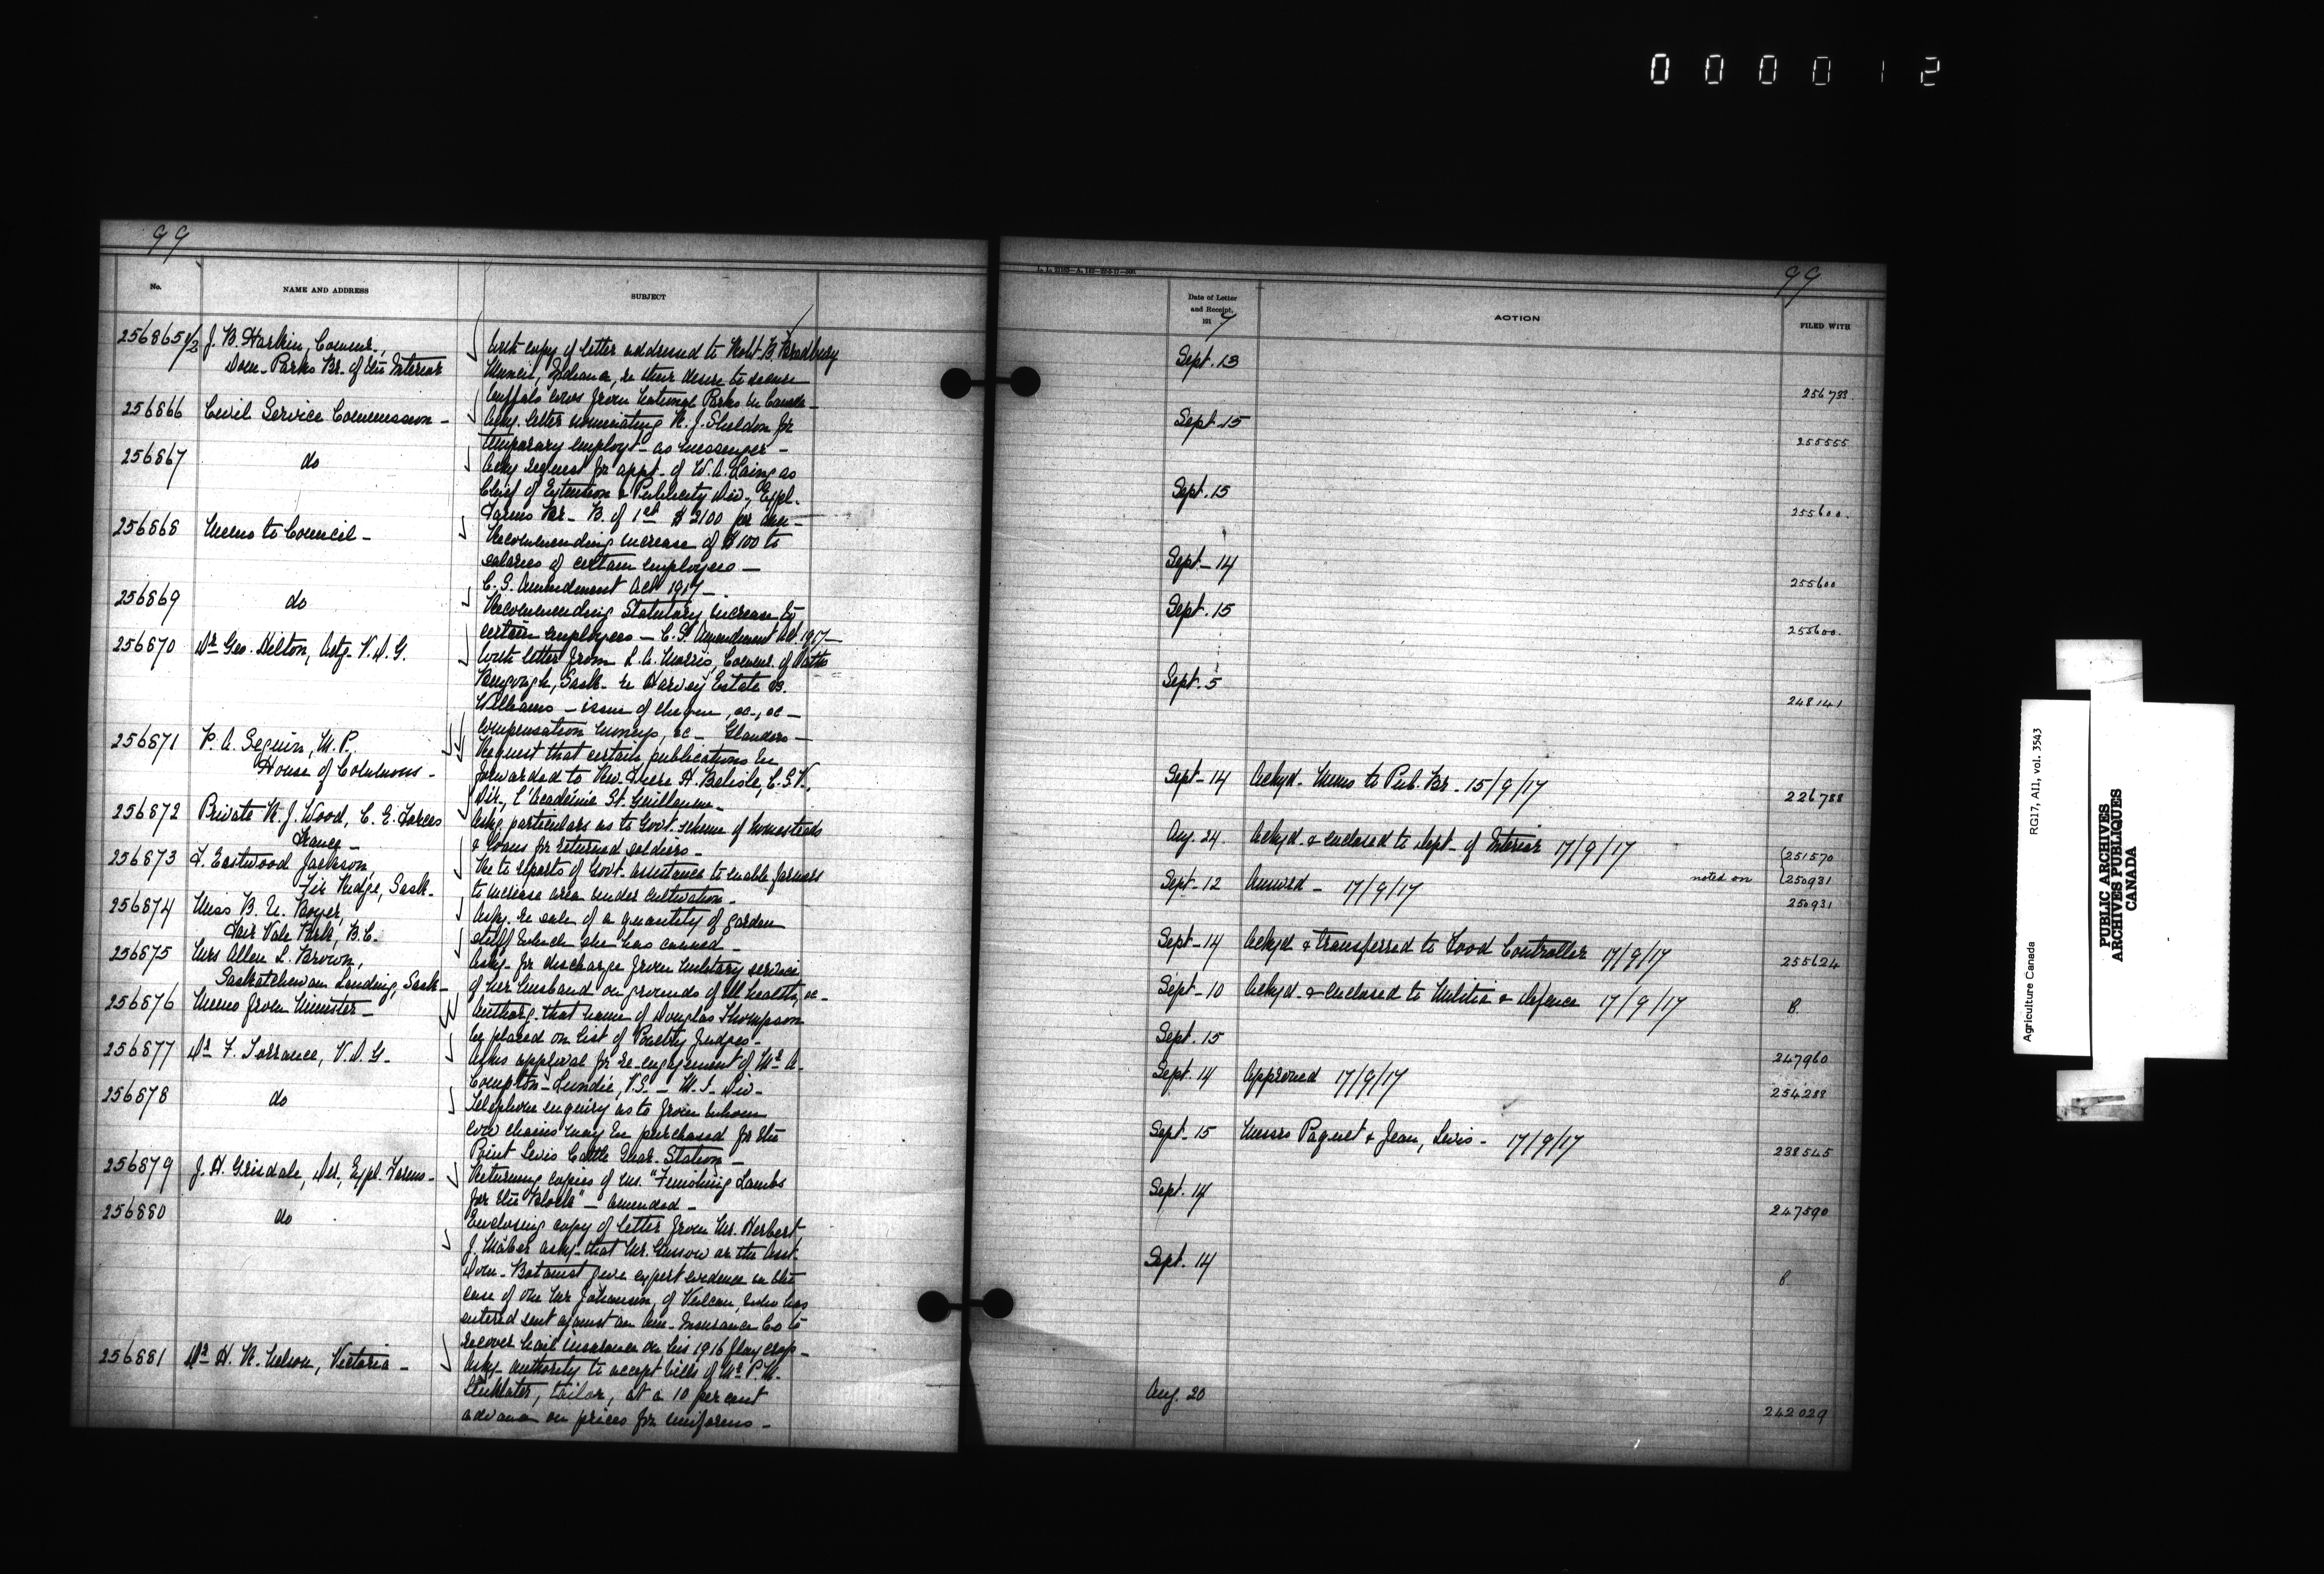 000012
99
No.
NAME AND ADDRESS
SUBJECT
256865 1/2 J. B. Harkin, Commr.,
Dom. Parks Br. of the Interior
With copy of letter addressed to Robt. B. Bradbury
Muncie, Indiana, re their desire to secure
buffalo cows from National Parks in Canada
256866 Civil Service Commission -
Ackg. letter nominating R. J. Sheldon for
temporary employt - as messenger -
256867 do
Ackg request for appt. of W. A. Laing as
Chief of Extension & Publicity Div., Expl.
Farms Br - B. of 1st $2100 per ann -
256868 Memo to Council -
Recommending increase of $100 to
salaries of certain employees -
C. S. Amendment Act 1917 -
256869 do
Recommending Statutory increase to
certain employees - C. S. Amendment Act 1917 -
256870 Dr Geo. Hilton, Actg. V. D. G.
With letter from L. A. Morris, Commr. of Oaths
Bengough, Sask. re Harvey Estate vs.
Williams - issue of cheque, &c., &c -
compensation moneys, &c - Glanders -
256871 P. A. Seguin, M. P.,
House of Commons -
Request that certain publications be
forwarded to Rev. Frere H. Belisle, C.S.V.,
Dir., l'Académie St. Guillaume -
256872 Private R. J. Wood, C. E. Forces
France -
Askg. particulars as to Govt. scheme of homesteads
& loans for returned soldiers -
256873 F. Eastwood Jackson,
Fir Ridge, Sask.
Re to reports of Govt. assistance to enable farmers
to increase area under cultivation -
256874 Miss B. U. Boyer,
Fair Vale Park, B.C.
Askg. re sale of a quantity of garden
stuff which she has canned -
256875 Mrs Allen L. Brown,
Saskatchewan Landing, Sask -
Askg. for discharge from military service
of her husband on grounds of ill health, &c -
256876 Memo from Minister -
Authorg. that name of Douglas Thompson
be placed on list of Poultry Judges -
256877 Dr F. Torrance, V. D. G.
Asks approval for re-engagement of Mr A.
Compton-Lundie, V.S. - M. I. Div -
256878 do
Telephone enquiry as to from whom
cow chains may be purchased for the
Point Levis Cattle Quar. Station -
256879 J. H. Grisdale, Dir., Expl. Farms -
Returning copies of ms. "Finishing Lambs
for the Block" - amended -
256880 do
Enclosing copy of letter from Mr. Herbert
J. Maber askg. that Mr. Gussow or the Asst.
Dom. Botanist give expert evidence in the
case of one Mr Johansen, of Vulcan, who has
entered suit against an Am. Insurance Co to
recover hail insurance on his 1916 flax crop -
256881 Dr H. R. Nelson, Victoria -
Askg. authority to accept bills of Mr P. M.
Linklater, tailor, at a 10 per cent
advance on prices for uniforms -
99
Date of Letter
and Receipt,
191 7
ACTION
FILED WITH
Sept. 13 256733
Sept. 15 255555
Sept. 15 255600
Sept - 14 255600
Sept. 15 255600
Sept. 5 248141
Sept - 14 Ackyd. Memo to Pub. Br. 15/9/17 226788
Aug. 24. Ackyd. & enclosed to Dept. of Interior 17/9/17 251570
noted on 250931
Sept - 12 Answd - 17/9/17 250931
Sept - 14 Ackyd & transferred to Food Controller 17/9/17 255624
Sept - 10 Ackyd. & enclosed to Militia & Defence 17/9/17 B
Sept. 15 247960
Sept. 14 Approved 17/9/17 254288
Sept - 15 Messrs Paquet & Jean, Levis - 17/9/17 238545
Sept. 14 247590
Sept. 14
Aug. 20 242029
RG17, AII, vol. 3543
Agriculture Canada
PUBLIC ARCHIVES
ARCHIVES PUBLIQUES
CANADA